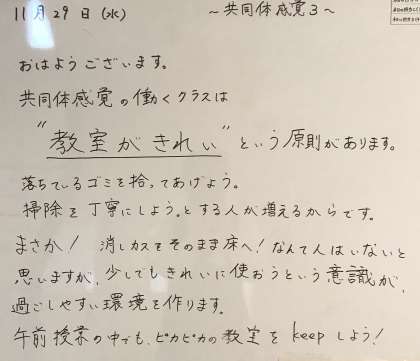 11月29日(水) ～共同体感覚3～
おはようございます。
共同体感覚の働くクラスは
"教室がきれい"という原則があります。
落ちているゴミを拾ってあげよう。
掃除を丁寧にしよう。とする人が増えるからです。
まさか！ 消しカスをそのまま床へ！なんて人はいないと
思いますが、少しでもきれいに使おうという意識が、
過ごしやすい環境を作ります。
午前授業の中でも、ピカピカの教室をkeepしよう！